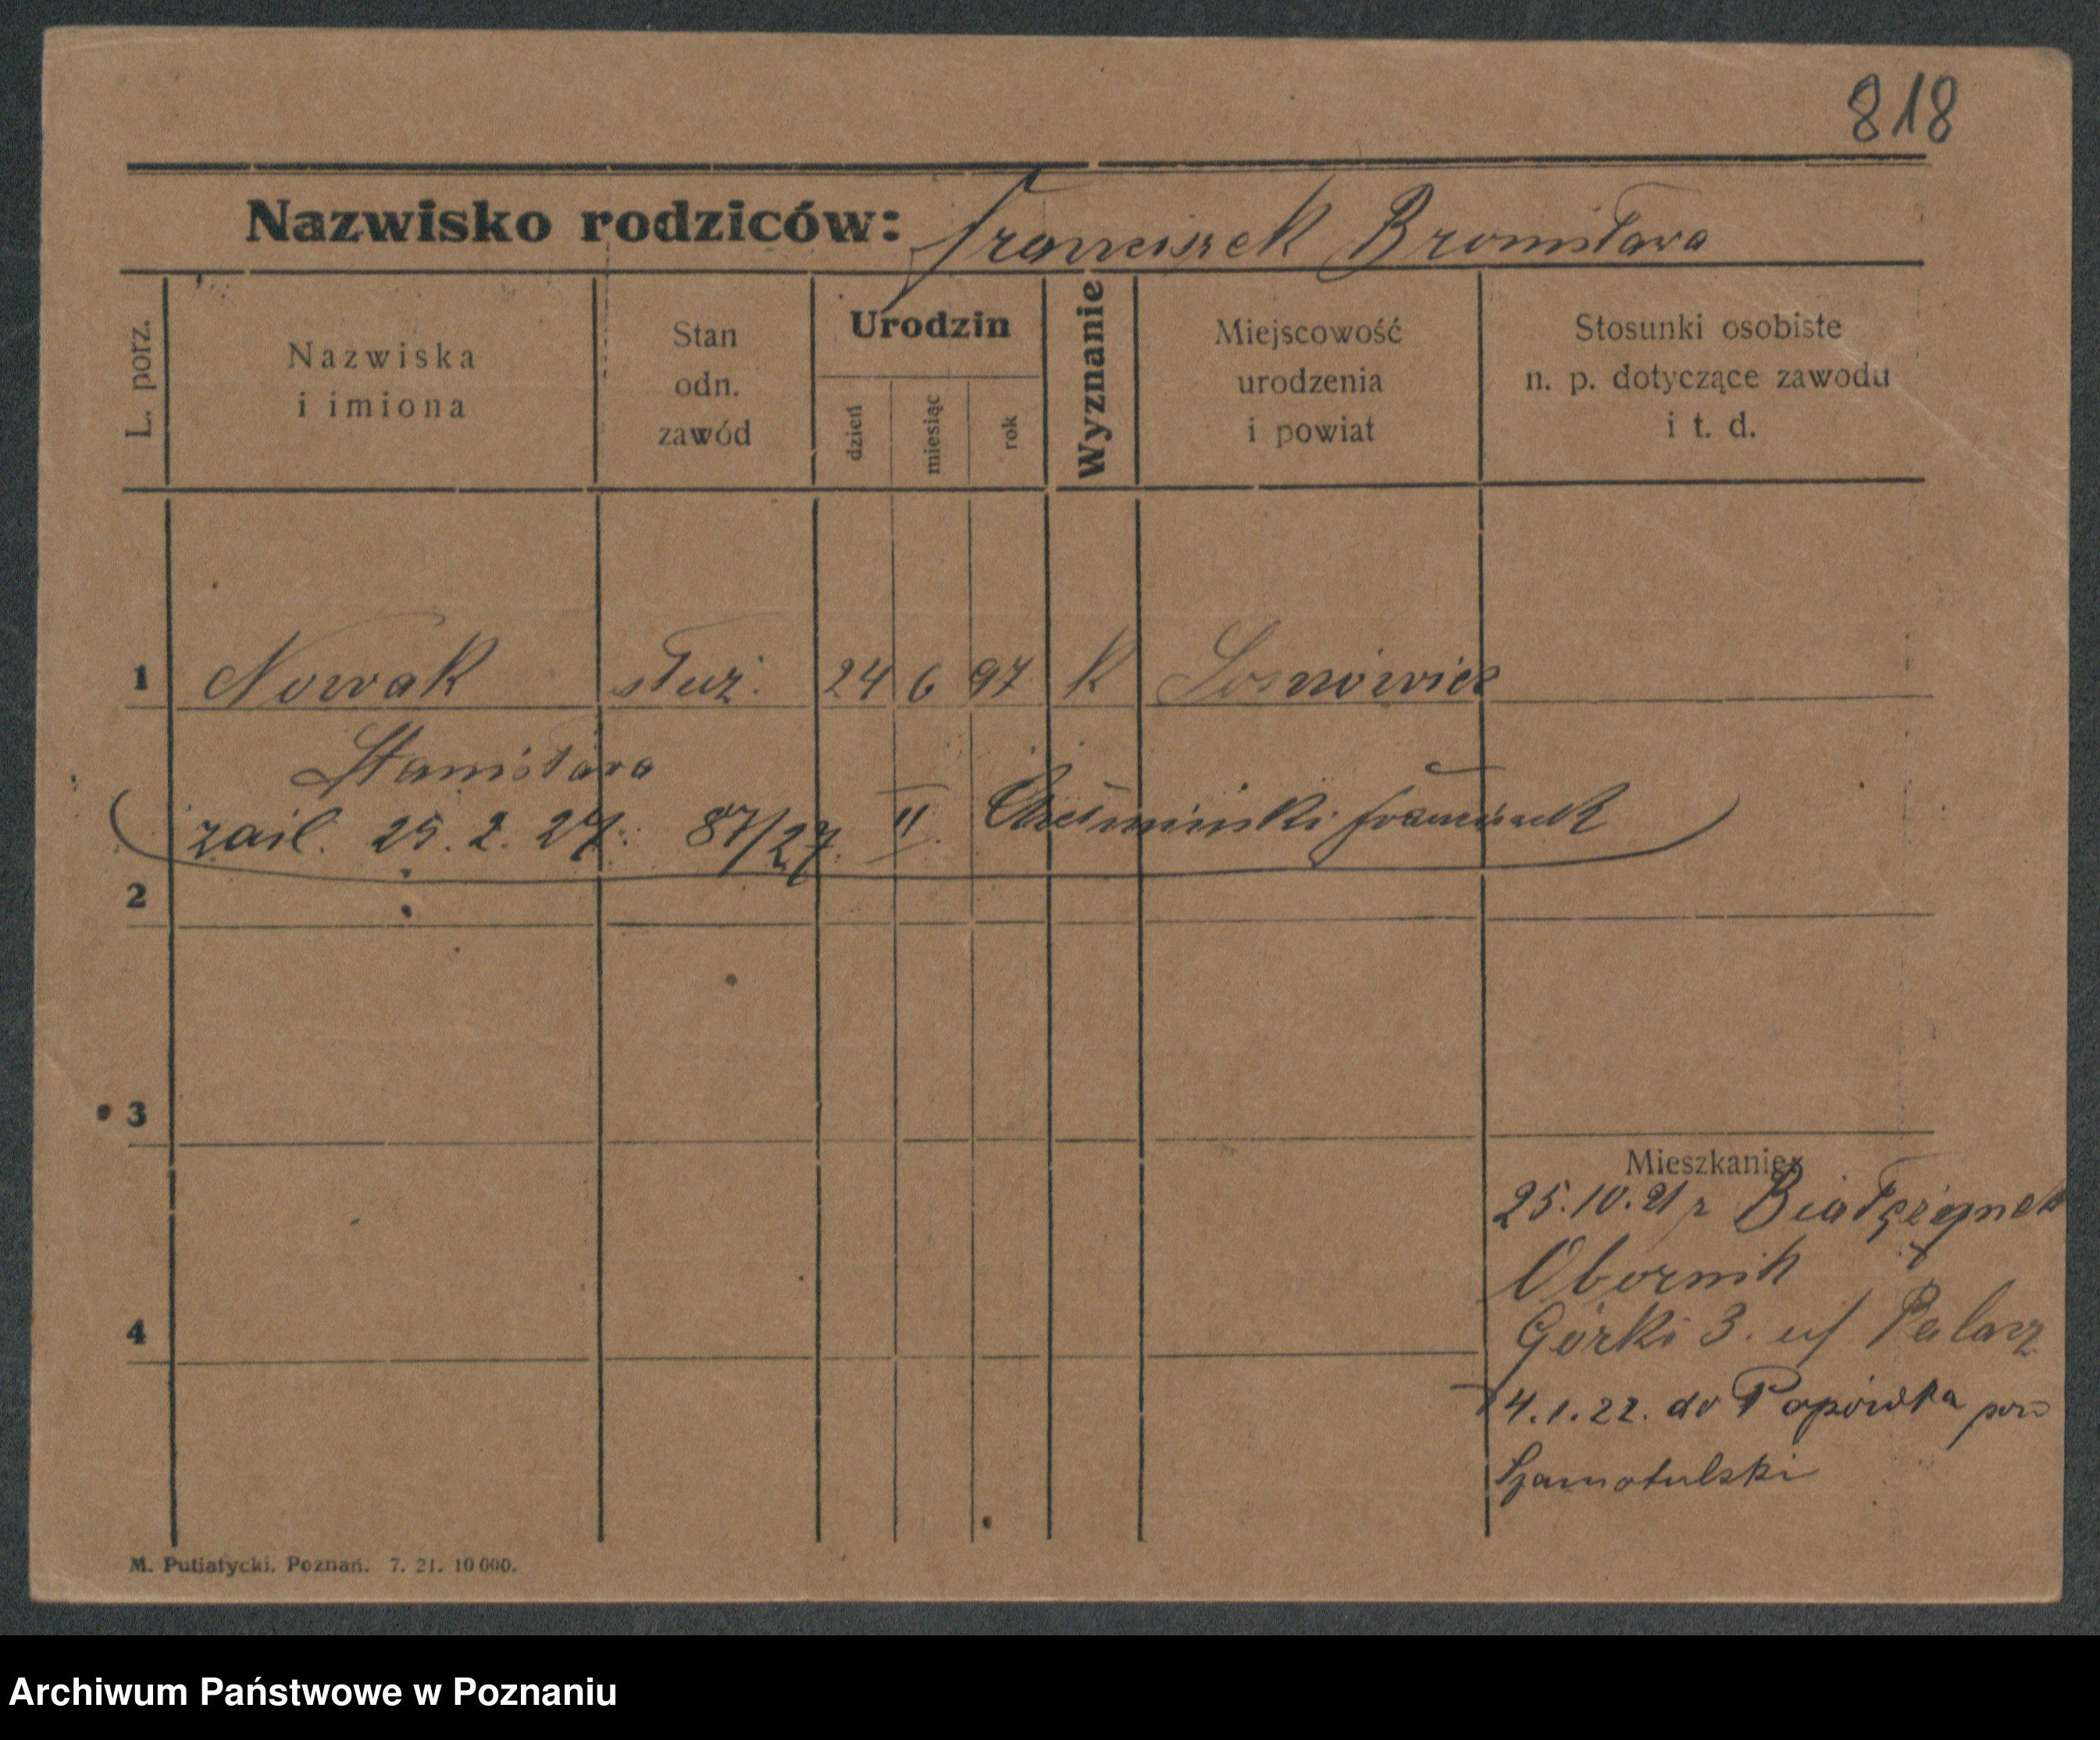 818
Nazwisko rodziców: Franciszek Bronisława
L. porz.
Nazwiska
i imiona
Stan
odn.
zawód
Urodzin
dzień
miesiąc
rok
Wyznanie
Miejscowość
urodzenia
i powiat
Stosunki osobiste
n. p. dotyczące zawodu
i t. d.
1 Nowak służ. 24 6 97 K
Stanisława
zaśl. 25. 2. 27. 87/27. II. Franciszek
2
3
Mieszkanie:
25.10.21 z Białężynek
Obornik
4
Górki 3. u/ Palacz
14.1.22. do Popówka pow
Szamotulski
M. Putiatycki. Poznań. 7. 21. 10 000.
Archiwum Państwowe w Poznaniu